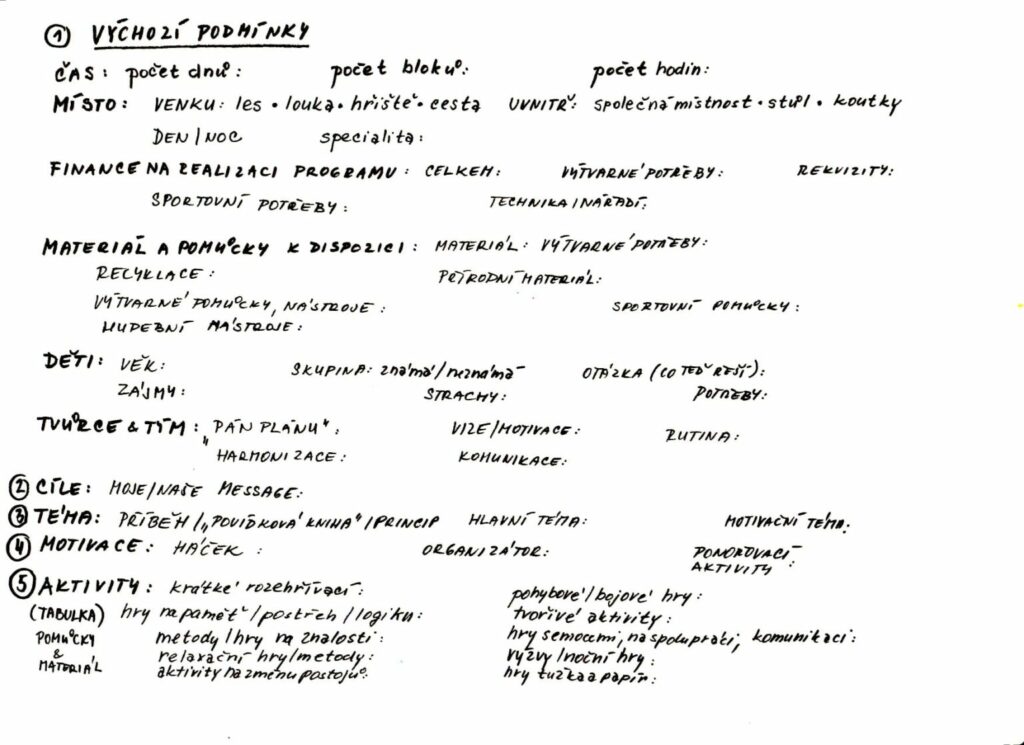 ① VÝCHOZÍ PODMÍNKY
ČAS: počet dnů: počet bloků: počet hodin:
MÍSTO: VENKU: les • louka • hřiště • cesta UVNITŘ: společná místnost • stůl • koutky
DEN/NOC specialita:
FINANCE NA REALIZACI PROGRAMU: CELKEM: VÝTVARNÉ POTŘEBY: REKVIZITY:
SPORTOVNÍ POTŘEBY: TECHNIKA/NÁŘADÍ:
MATERIÁL A POMŮCKY K DISPOZICI: MATERIÁL: VÝTVARNÉ POTŘEBY:
RECYKLACE: PŘÍRODNÍ MATERIÁL:
VÝTVARNÉ POMŮCKY, NÁSTROJE: SPORTOVNÍ POMŮCKY:
HUDEBNÍ NÁSTROJE:
DĚTI: VĚK: SKUPINA: známá/neznámá OTÁZKA (CO TEĎ ŘEŠÍ):
ZÁJMY: STRACHY: POTŘEBY:
TVŮRCE & TÝM: „PÁN PLÁNU": VIZE/MOTIVACE: RUTINA:
HARMONIZACE: KOMUNIKACE:
② CÍLE: MOJE/NAŠE MESSAGE:
③ TÉMA: PŘÍBĚH/„POVÍDKOVÁ KNIHA"/PRINCIP HLAVNÍ TÉMA: MOTIVAČNÍ TÉMA:
④ MOTIVACE: HÁČEK: ORGANIZÁTOR: PONOROVACÍ
AKTIVITY:
⑤ AKTIVITY: krátké rozehřívací: pohybové/bojové hry:
(TABULKA) hry na paměť/postřeh/logiku: tvořivé aktivity:
POMŮCKY metody/hry na znalosti: hry s emocemi, na spolupráci, komunikaci:
& relaxační hry/metody: výzvy/noční hry:
MATERIÁL aktivity na změnu postojů: hry tužka a papír: